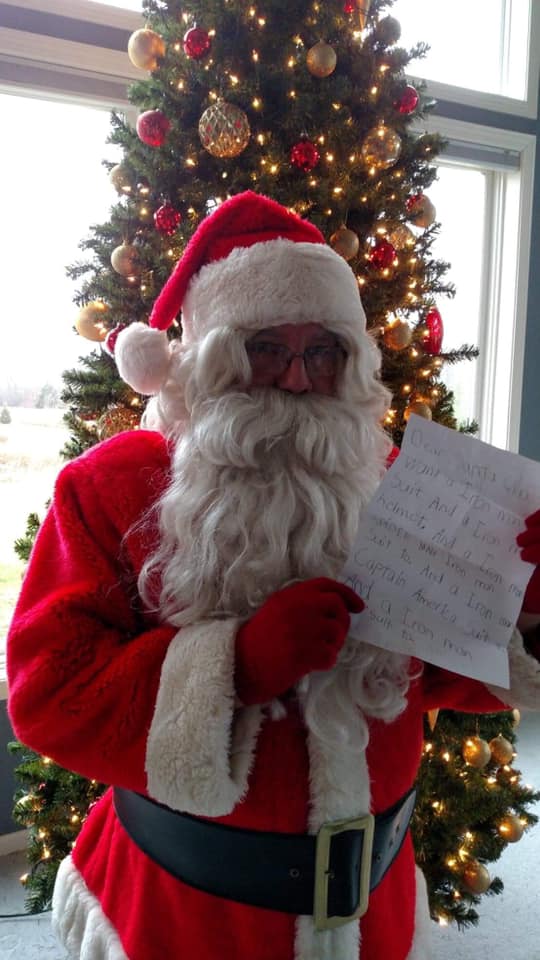 Dear Santa
Want a Iron man
Suit And a Iron
helmet, And a Iron man
Iron man
Suit to And a Iron man
Captain America Suit
And a Iron man
Suit to